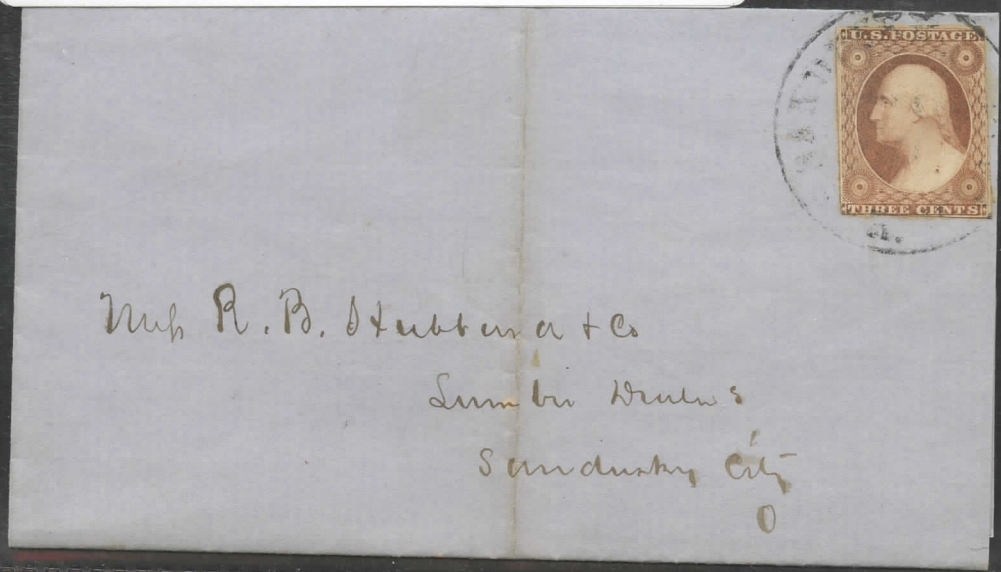 U.S. POSTAGE
THREE CENTS
O.
Mess R. B. Hubbard & Co
Lumber Dealers
Sandusky City
O